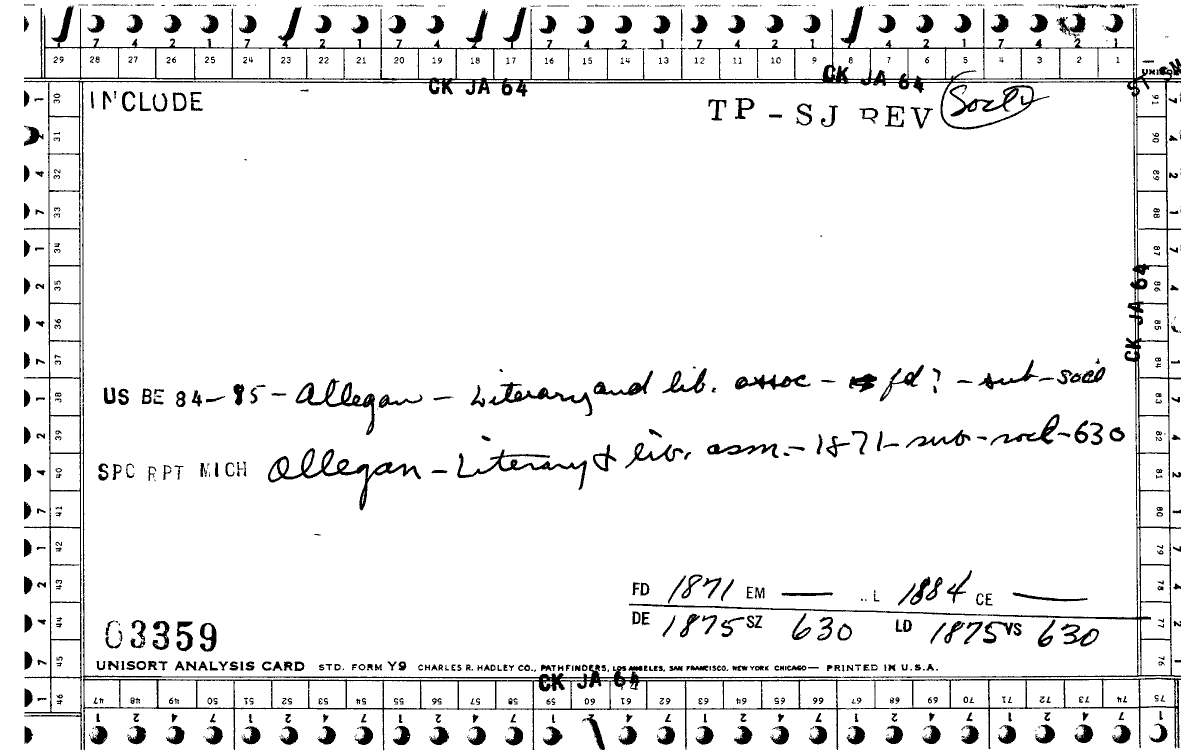 7 4 2 1 7 4 2 1 7 4 2 1 7 4 2 1 7 4 2 1 7 4 2 1
29 28 27 26 25 24 23 22 21 20 19 18 17 16 15 14 13 12 11 10 9 8 7 6 5 4 3 2 1
CK JA 64 CK JA 64
INCLUDE TP - SJ REV Socl
CK JA 64
US BE 84-85 - Allegan - Literary and lib. assoc - fd? - sub - socl
SPC RPT MICH Allegan - Literary & lib. assn. - 1871 - sub - socl - 630
FD 1871 EM — L 1884 CE —
DE 1875 SZ 630 LD 1875 VS 630
03359
UNISORT ANALYSIS CARD STD. FORM Y9 CHARLES R. HADLEY CO., PATHFINDERS, LOS ANGELES, SAN FRANCISCO, NEW YORK CHICAGO — PRINTED IN U.S.A.
CK JA 64
47 48 49 50 51 52 53 54 55 56 57 58 59 60 61 62 63 64 65 66 67 68 69 70 71 72 73 74 75